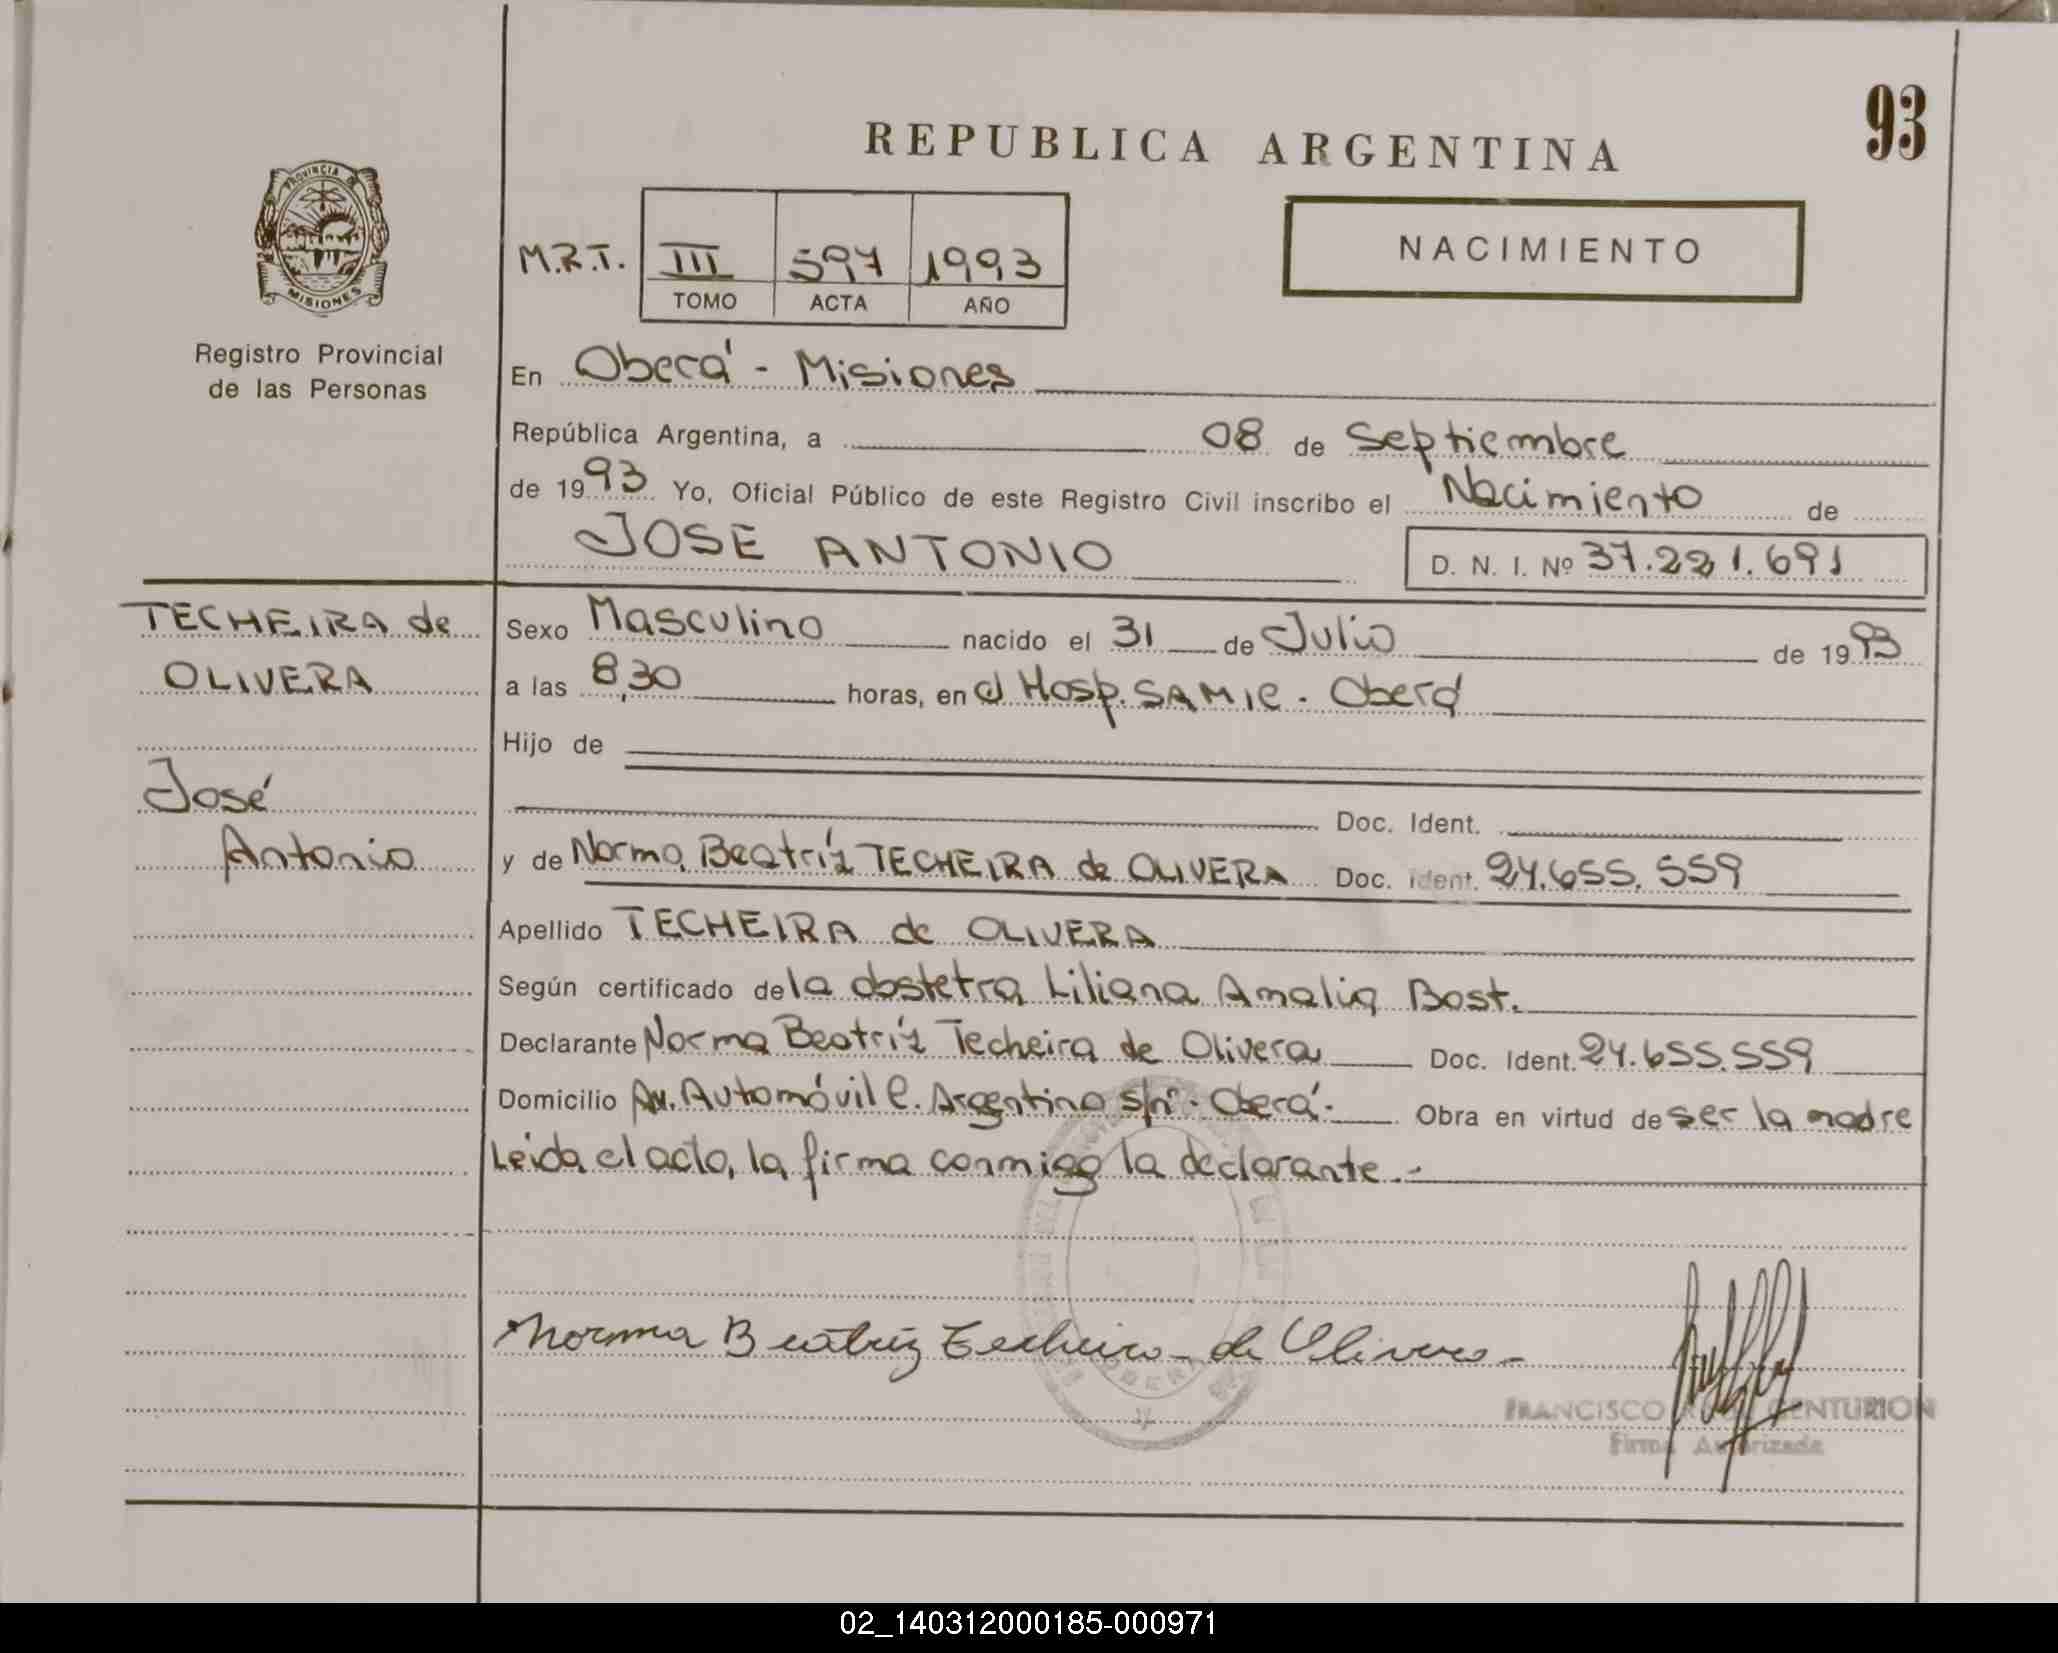 93
REPUBLICA ARGENTINA
PROVINCIA DE
MISIONES
Registro Provincial
de las Personas
M.R.T. III 597 1993
TOMO ACTA AÑO
NACIMIENTO
En Oberá - Misiones
República Argentina, a 08 de Septiembre
de 1993 Yo, Oficial Público de este Registro Civil inscribo el Nacimiento de
JOSE ANTONIO D. N. I. Nº 37.221.691
TECHEIRA de
OLIVERA
José
Antonio
Sexo Masculino nacido el 31 de Julio de 1993
a las 8,30 horas, en el Hosp. SAMIC. Oberá
Hijo de
Doc. Ident.
y de Norma Beatríz TECHEIRA de OLIVERA Doc. Ident. 24.655.559
Apellido TECHEIRA de OLIVERA
Según certificado de la obstetra Liliana Amalia Bost.
Declarante Norma Beatríz Techeira de Olivera Doc. Ident. 24.655.559
Domicilio Av. Automóvil C. Argentino s/nº - Oberá - Obra en virtud de ser la madre
Leida el acta, la firma conmigo la declarante.-
Norma Beatriz Techeira de Olivera
FRANCISCO CENTURION
Firma Autorizada
02_140312000185-000971